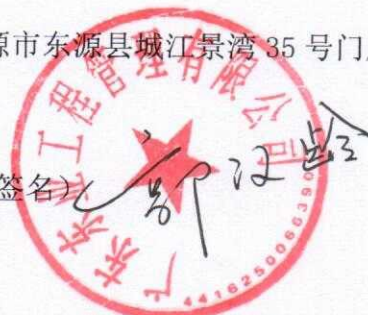 源市东源县城江景湾 35 号门
广东东旭工程管理有限公司
签名)
4416250066390